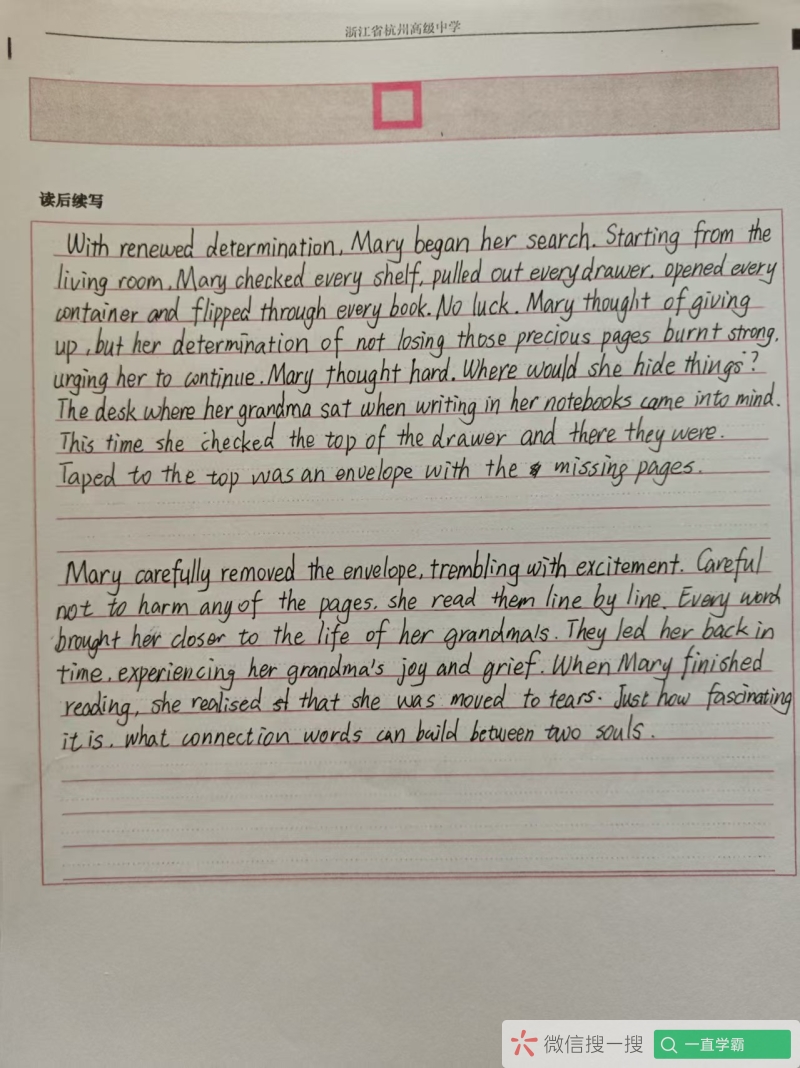 浙江省杭州高级中学
读后续写
With renewed determination, Mary began her search. Starting from the
living room, Mary checked every shelf, pulled out every drawer, opened every
container and flipped through every book. No luck. Mary thought of giving
up, but her determination of not losing those precious pages burnt strong,
urging her to continue. Mary thought hard. Where would she hide things?
The desk where her grandma sat when writing in her notebooks came into mind.
This time she checked the top of the drawer and there they were.
Taped to the top was an envelope with the missing pages.
Mary carefully removed the envelope, trembling with excitement. Careful
not to harm any of the pages, she read them line by line. Every word
brought her closer to the life of her grandma's. They led her back in
time, experiencing her grandma's joy and grief. When Mary finished
reading, she realised that she was moved to tears. Just how fascinating
it is, what connection words can build between two souls.
微信搜一搜
一直学霸